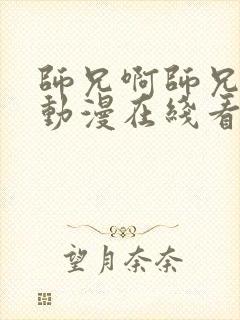 師兄啊師兄
動漫在綫看
望月奈奈